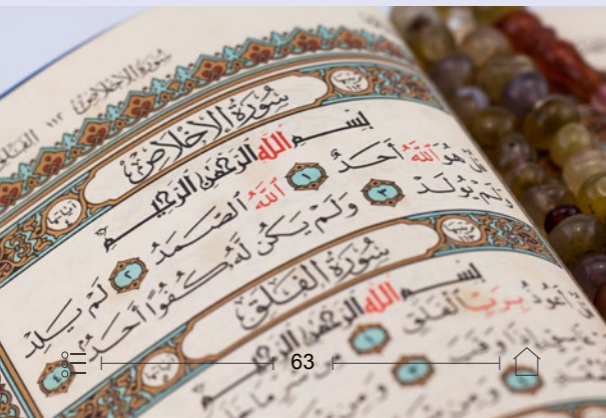 سُورَةُ الإِخْلَاصِ ١١٢
سُورَةُ الإِخْلَاصِ
بِسْمِ اللَّهِ الرَّحْمَٰنِ الرَّحِيمِ
قُلْ هُوَ اللَّهُ أَحَدٌ ١ اللَّهُ الصَّمَدُ ٢ لَمْ يَلِدْ
وَلَمْ يُولَدْ ٣ وَلَمْ يَكُن لَّهُ كُفُوًا أَحَدٌ ٤
سُورَةُ الفَلَقِ
بِسْمِ اللَّهِ الرَّحْمَٰنِ الرَّحِيمِ
قُلْ أَعُوذُ بِرَبِّ الْفَلَقِ ١ مِن شَرِّ مَا خَلَقَ
إِذَا وَقَبَ ٣ وَمِن
63